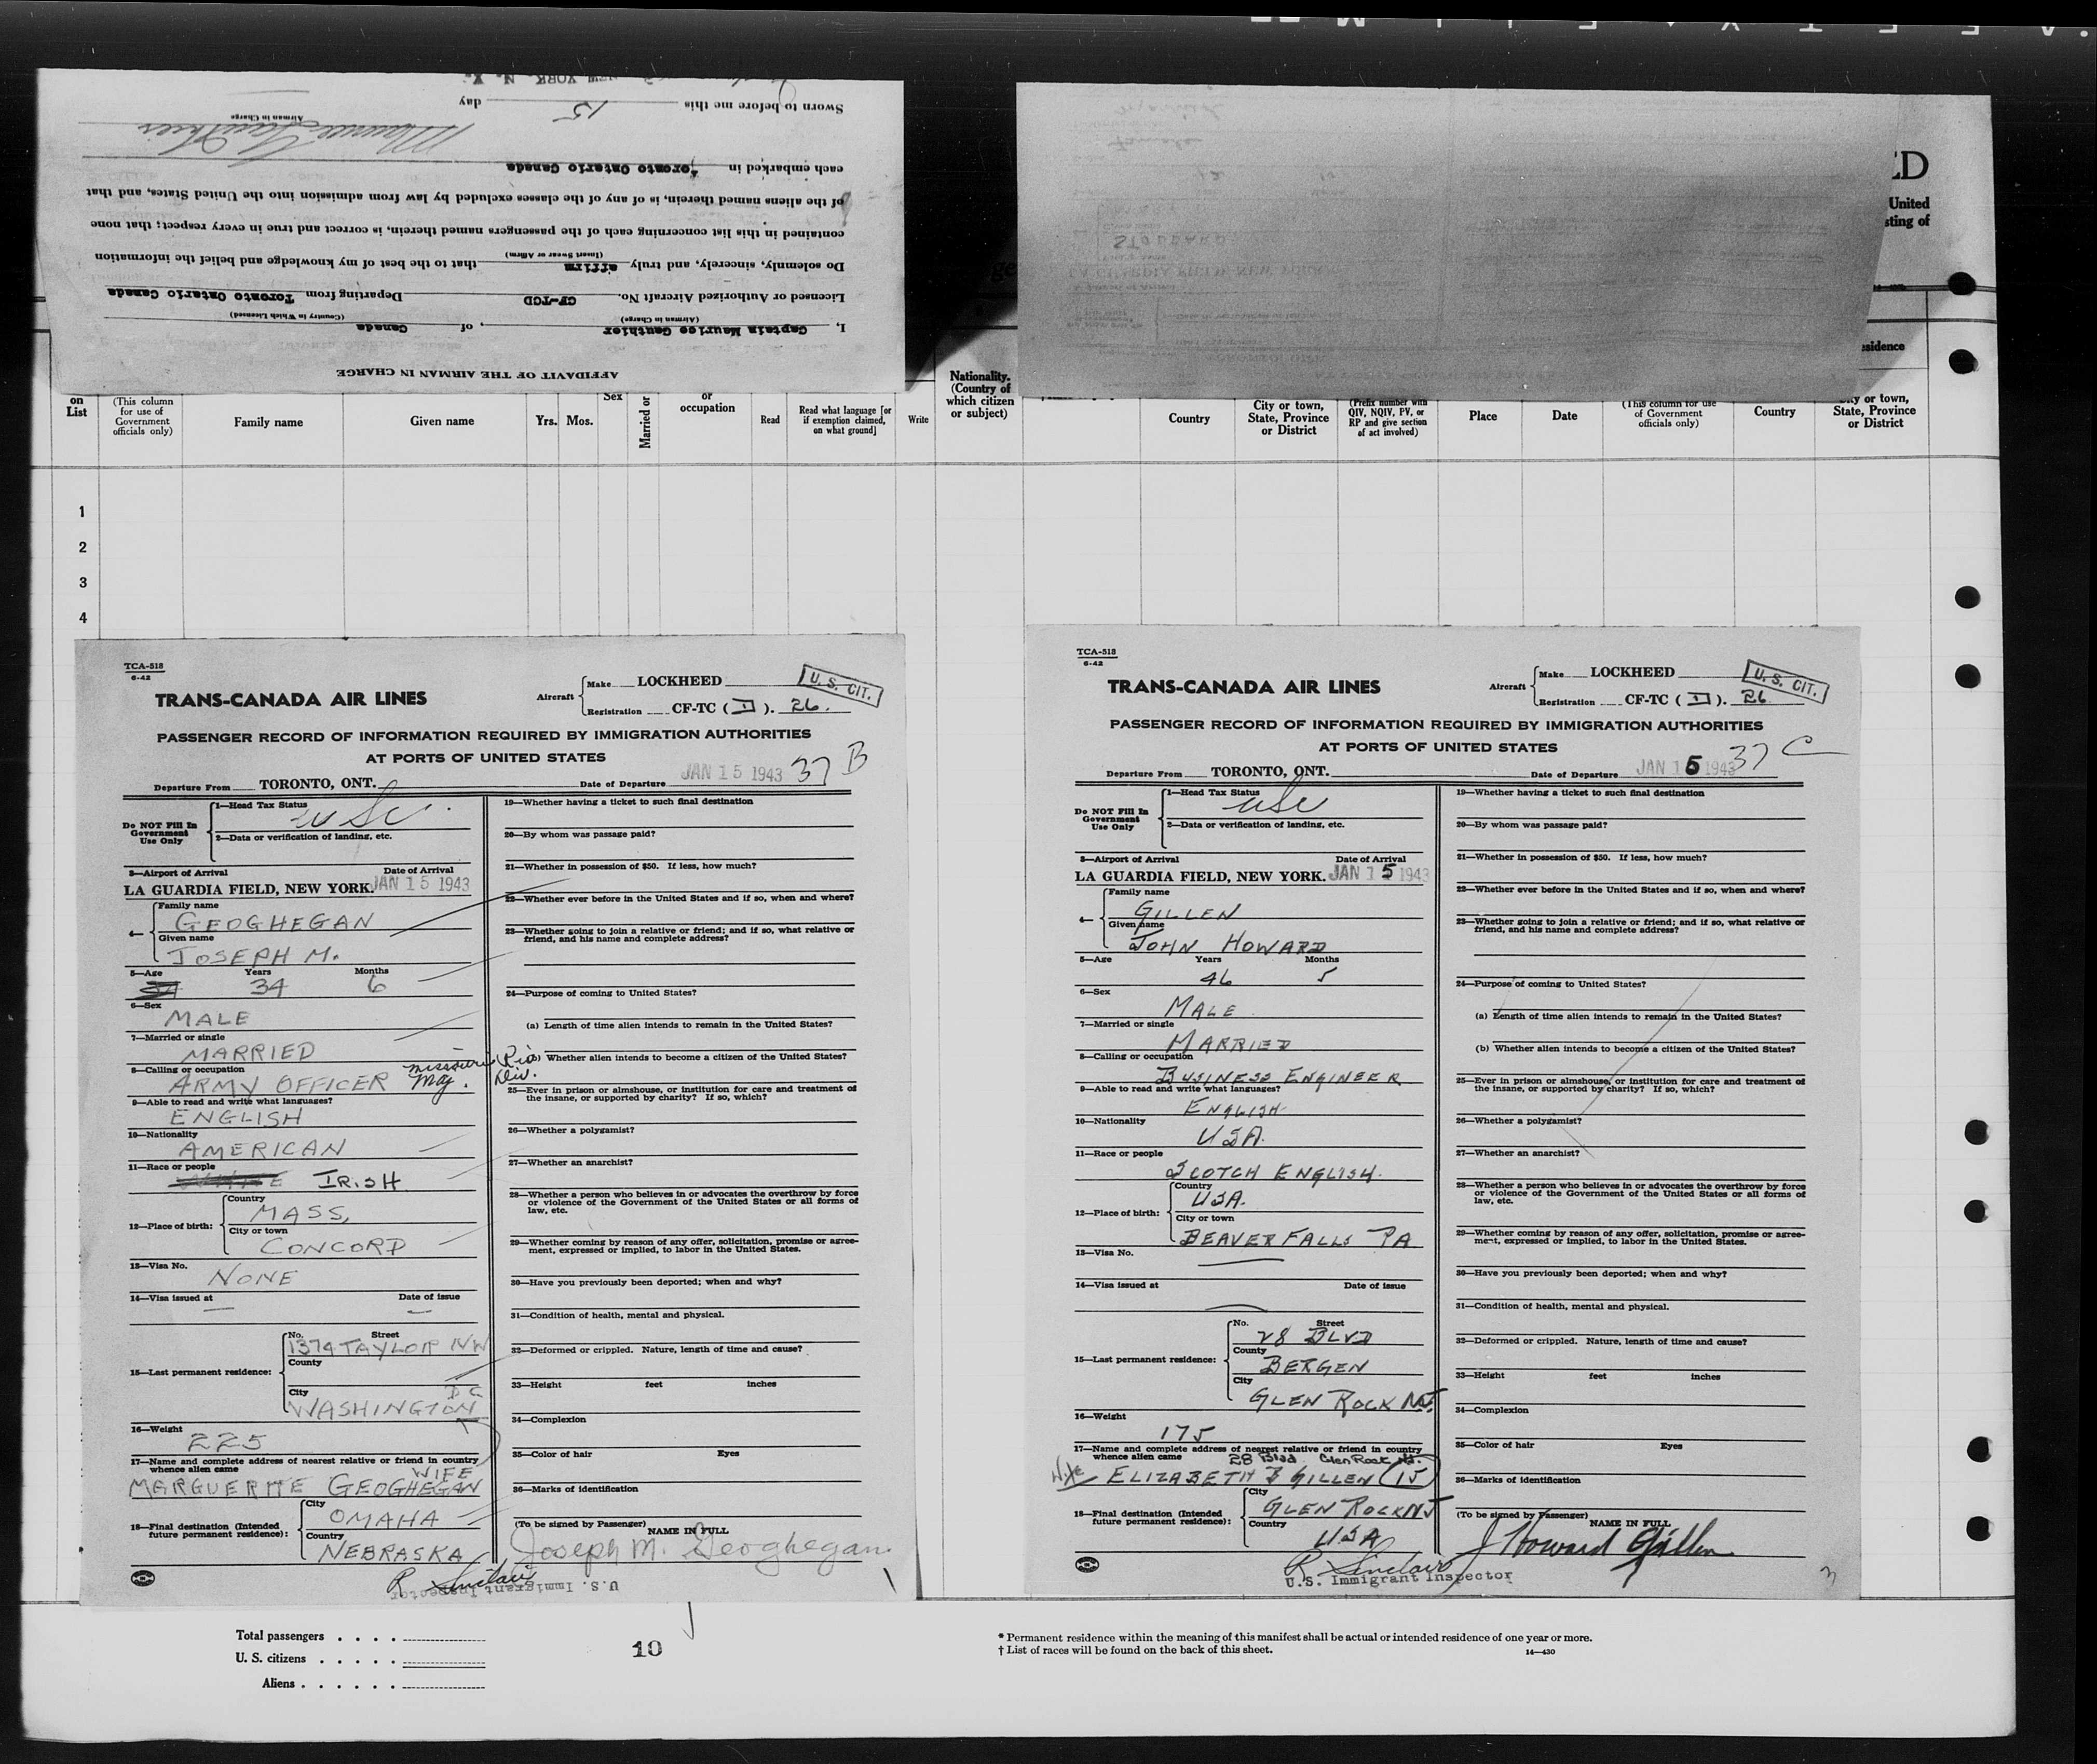 AFFIDAVIT OF THE AIRMAN IN CHARGE
I, Captain Maurice Gauthier, of Canada
(Airman in Charge) (Country in Which Licensed)
Licensed or Authorized Aircraft No. CF-TCD Departing from Toronto Ontario Canada
Do solemnly, sincerely, and truly affirm that to the best of my knowledge and belief the information
(Insert Swear or Affirm)
contained in this list concerning each of the passengers named therein, is correct and true in every respect; that none
of the aliens named therein, is of any of the classes excluded by law from admission into the United States, and that
each embarked in Toronto Ontario Canada
Maurice Gauthier
Airman in Charge
Sworn to before me this 15 day
NEW YORK N. Y.
STODDARD
Female
ED
United
sting of
sidence
on List
(This column for use of Government officials only)
Family name
Given name
Yrs. Mos.
Sex
Married or
or occupation
Read
Read what language [or if exemption claimed, on what ground]
Write
Nationality. (Country of which citizen or subject)
Country
City or town, State, Province or District
(Prefix number with QIV, NQIV, PV, or RP and give section of act involved)
Place
Date
(This column for use of Government officials only)
Country
City or town, State, Province or District
1
2
3
4
TCA-518
6-42
TRANS-CANADA AIR LINES
Aircraft
Make LOCKHEED
Registration CF-TC ( I ). 26.
U. S. CIT.
PASSENGER RECORD OF INFORMATION REQUIRED BY IMMIGRATION AUTHORITIES
AT PORTS OF UNITED STATES
37 B
Departure From TORONTO, ONT. Date of Departure JAN 15 1943
Do NOT Fill In Government Use Only
1—Head Tax Status
USC
2—Data or verification of landing, etc.
3—Airport of Arrival Date of Arrival
LA GUARDIA FIELD, NEW YORK. JAN 15 1943
4—
Family name
GEOGHEGAN
Given name
JOSEPH M.
5—Age Years Months
34 6
6—Sex
MALE
7—Married or single
MARRIED
8—Calling or occupation
ARMY OFFICER Maj. Missouri Riv. Div.
9—Able to read and write what languages?
ENGLISH
10—Nationality
AMERICAN
11—Race or people
WHITE IRISH
12—Place of birth:
Country
MASS.
City or town
CONCORD
13—Visa No.
NONE
14—Visa issued at Date of issue
15—Last permanent residence:
No. Street
1374 TAYLOR NW
County
City
D C
WASHINGTON
16—Weight
225
17—Name and complete address of nearest relative or friend in country
whence alien came
WIFE
MARGUERITE GEOGHEGAN
18—Final destination (Intended future permanent residence):
City
OMAHA
Country
NEBRASKA
R Sinclair
U.S. Immigrant Inspector
19—Whether having a ticket to such final destination
20—By whom was passage paid?
21—Whether in possession of $50. If less, how much?
22—Whether ever before in the United States and if so, when and where?
23—Whether going to join a relative or friend; and if so, what relative or
friend, and his name and complete address?
24—Purpose of coming to United States?
(a) Length of time alien intends to remain in the United States?
(b) Whether alien intends to become a citizen of the United States?
25—Ever in prison or almshouse, or institution for care and treatment of
the insane, or supported by charity? If so, which?
26—Whether a polygamist?
27—Whether an anarchist?
28—Whether a person who believes in or advocates the overthrow by force
or violence of the Government of the United States or all forms of
law, etc.
29—Whether coming by reason of any offer, solicitation, promise or agree-
ment, expressed or implied, to labor in the United States.
30—Have you previously been deported; when and why?
31—Condition of health, mental and physical.
32—Deformed or crippled. Nature, length of time and cause?
33—Height feet inches
34—Complexion
35—Color of hair Eyes
36—Marks of identification
(To be signed by Passenger)
NAME IN FULL
Joseph M. Geoghegan
TCA-518
6-42
TRANS-CANADA AIR LINES
Aircraft
Make LOCKHEED
Registration CF-TC ( I ). 26
U. S. CIT.
PASSENGER RECORD OF INFORMATION REQUIRED BY IMMIGRATION AUTHORITIES
AT PORTS OF UNITED STATES
37 C
Departure From TORONTO, ONT. Date of Departure JAN 15 1943
Do NOT Fill In Government Use Only
1—Head Tax Status
USC
2—Data or verification of landing, etc.
3—Airport of Arrival Date of Arrival
LA GUARDIA FIELD, NEW YORK. JAN 15 1943
4—
Family name
GILLEN
Given name
JOHN HOWARD
5—Age Years Months
46 5
6—Sex
MALE
7—Married or single
MARRIED
8—Calling or occupation
BUSINESS ENGINEER
9—Able to read and write what languages?
ENGLISH
10—Nationality
USA.
11—Race or people
SCOTCH ENGLISH.
12—Place of birth:
Country
USA.
City or town
BEAVER FALLS PA
13—Visa No.
14—Visa issued at Date of issue
15—Last permanent residence:
No. Street
28 BLVD
County
BERGEN
City
GLEN ROCK NJ.
16—Weight
175
17—Name and complete address of nearest relative or friend in country
whence alien came 28 Blvd. Glen Rock NJ.
Wife ELIZABETH B GILLEN (15)
18—Final destination (Intended future permanent residence):
City
GLEN ROCK NJ
Country
USA
R Sinclair
U.S. Immigrant Inspector
19—Whether having a ticket to such final destination
20—By whom was passage paid?
21—Whether in possession of $50. If less, how much?
22—Whether ever before in the United States and if so, when and where?
23—Whether going to join a relative or friend; and if so, what relative or
friend, and his name and complete address?
24—Purpose of coming to United States?
(a) Length of time alien intends to remain in the United States?
(b) Whether alien intends to become a citizen of the United States?
25—Ever in prison or almshouse, or institution for care and treatment of
the insane, or supported by charity? If so, which?
26—Whether a polygamist?
27—Whether an anarchist?
28—Whether a person who believes in or advocates the overthrow by force
or violence of the Government of the United States or all forms of
law, etc.
29—Whether coming by reason of any offer, solicitation, promise or agree-
ment, expressed or implied, to labor in the United States.
30—Have you previously been deported; when and why?
31—Condition of health, mental and physical.
32—Deformed or crippled. Nature, length of time and cause?
33—Height feet inches
34—Complexion
35—Color of hair Eyes
36—Marks of identification
(To be signed by Passenger)
NAME IN FULL
J Howard Gillen
3
Total passengers . . . .
U. S. citizens . . . . .
Aliens . . . . . .
10
* Permanent residence within the meaning of this manifest shall be actual or intended residence of one year or more.
† List of races will be found on the back of this sheet.
14—430